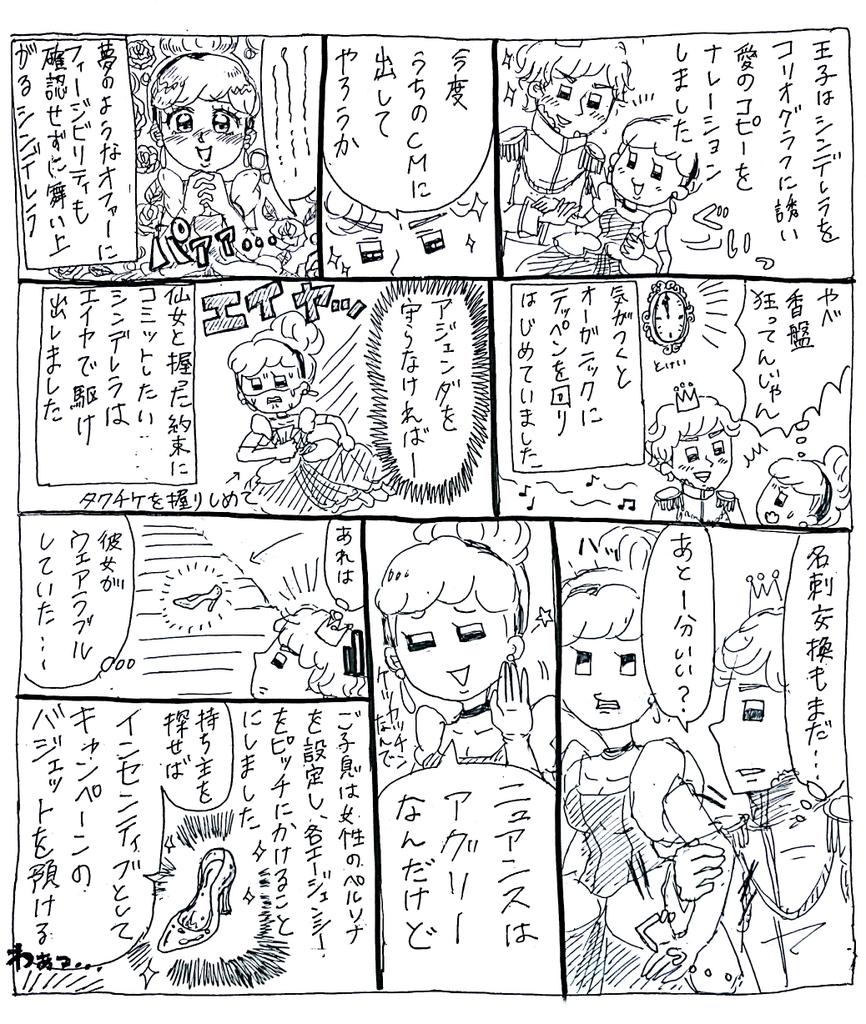 王子はシンデレラを
コリオグラフに誘い
愛のコピーを
ナレーション
しました
ぐいっ
今度
うちのCMに
出して
やろうか
パァァ…
夢のようなオファーに
フィージビリティも
確認せずに舞い上
がるシンデレラ
やべ
香盤
狂ってんじゃん
とけい
気がつくと
オーガニックに
テッペンを回り
はじめていました
アジェンダを
守らなければー
エイヤッ…
仙女と握った約束に
コミットしたい……
シンデレラは
エイヤで駆け
出しました
タクチケを握りしめて
名刺交換もまだ…
あと一分いい?
バッ
ニュアンスは
アグリー
なんだけど
ケツカッチン
なんで
あれは
彼女が
ウェアラブル
していた…
ご子息は女性のペルソナ
を設定し、各エージェンシー
をピッチにかけること
にしました
持ち主を
探せば
インセンティブとして
キャンペーンの
バジェットを預ける
わぁっ…